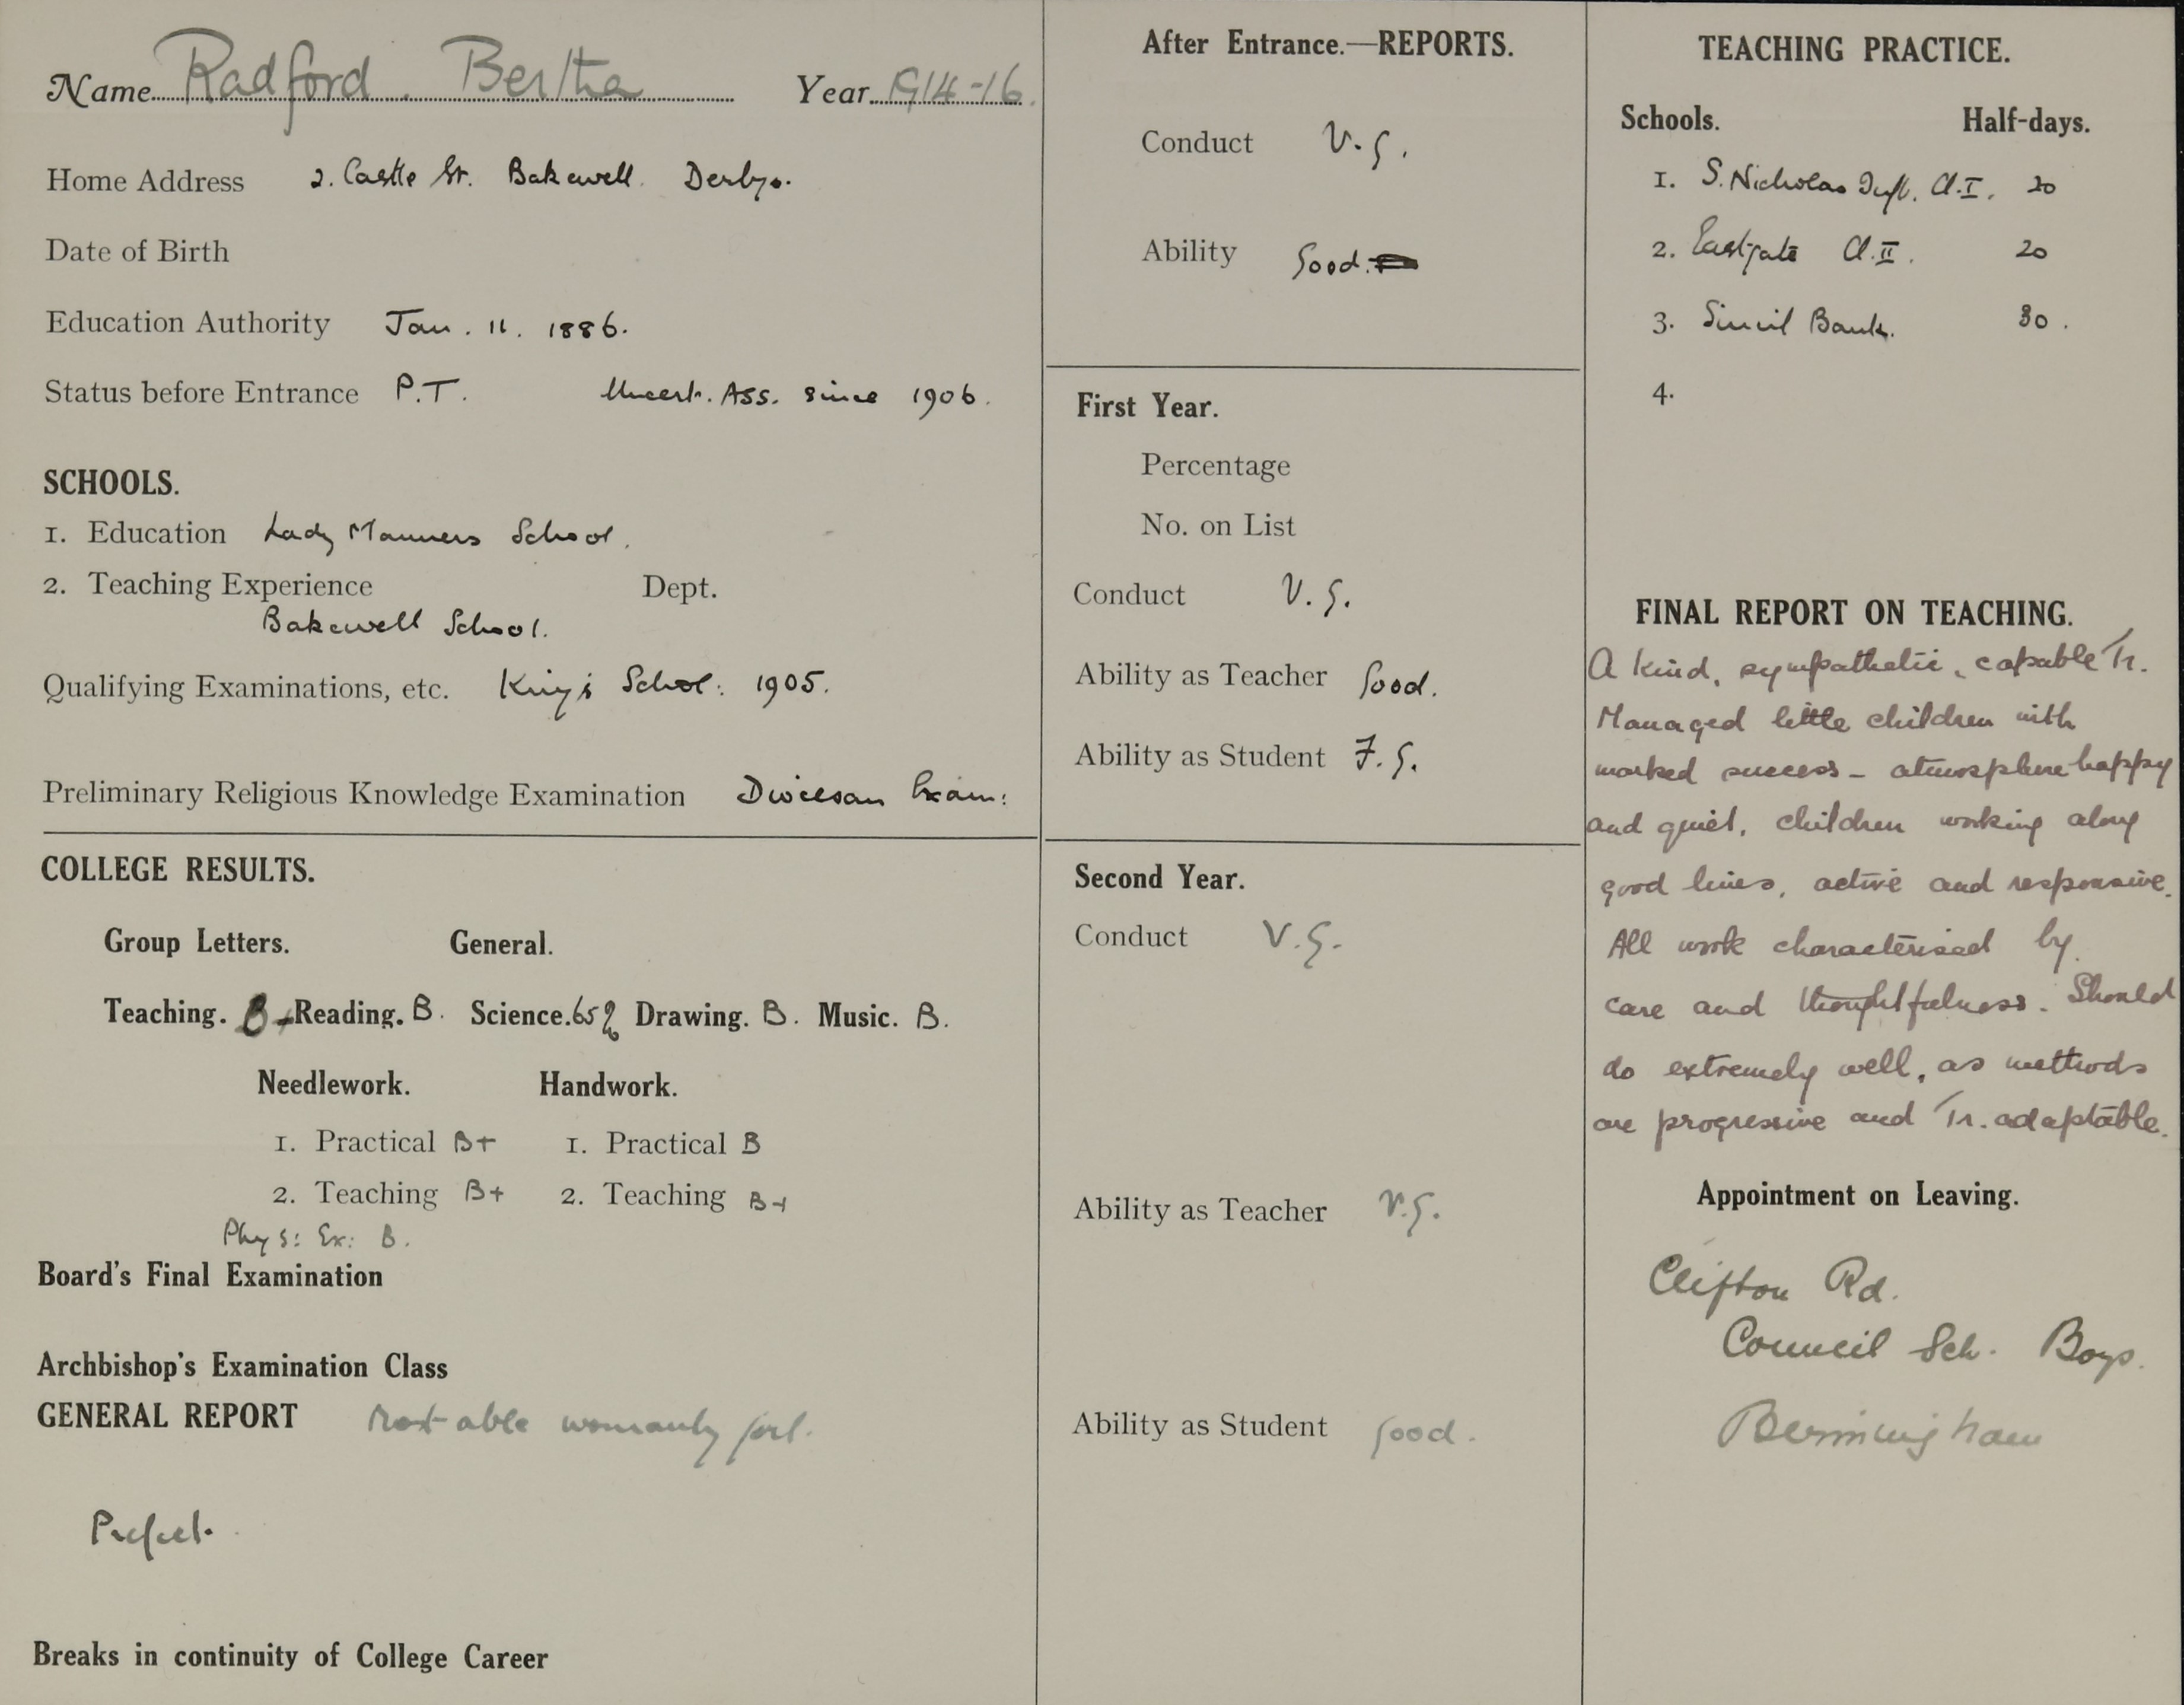 Name Radford. Bertha Year 1914-16.
Home Address 2. Castle St. Bakewell. Derbys.
Date of Birth
Education Authority Jan. 11. 1886.
Status before Entrance P.T. Uncert. Ass. since 1906.
SCHOOLS.
1. Education Lady Manners School.
2. Teaching Experience Dept.
Bakewell School.
Qualifying Examinations, etc. King's Schol: 1905.
Preliminary Religious Knowledge Examination Diocesan Exam:
COLLEGE RESULTS.
Group Letters. General.
Teaching. B+ Reading. B. Science. 65% Drawing. B. Music. B.
Needlework. Handwork.
1. Practical B+ 1. Practical B
2. Teaching B+ 2. Teaching B+
Phys: Ex: B.
Board's Final Examination
Archbishop's Examination Class
GENERAL REPORT able womanly girl.
Prefect.
Breaks in continuity of College Career
After Entrance.—REPORTS.
Conduct V.G.
Ability Good.
First Year.
Percentage
No. on List
Conduct V.G.
Ability as Teacher Good.
Ability as Student F.G.
Second Year.
Conduct V.G.
Ability as Teacher V.G.
Ability as Student Good.
TEACHING PRACTICE.
Schools. Half-days.
1. S. Nicholas Inft. Cl. I. 20
2. Eastgate Cl. II. 20
3. Sincil Bank. 30.
4.
FINAL REPORT ON TEACHING.
A kind, sympathetic, capable Tr.
Managed little children with
marked success - atmosphere happy
and quiet, children working along
good lines, active and responsive.
All work characterised by
care and thoughtfulness. Should
do extremely well, as methods
are progressive and Tr. adaptable.
Appointment on Leaving.
Clifton Rd.
Council Sch. Boys.
Birmingham